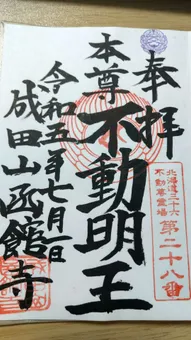 奉拝
本尊
不動明王
令和五年七月一日
成田山函館寺
北海道三十六
不動尊霊場
第二十八番